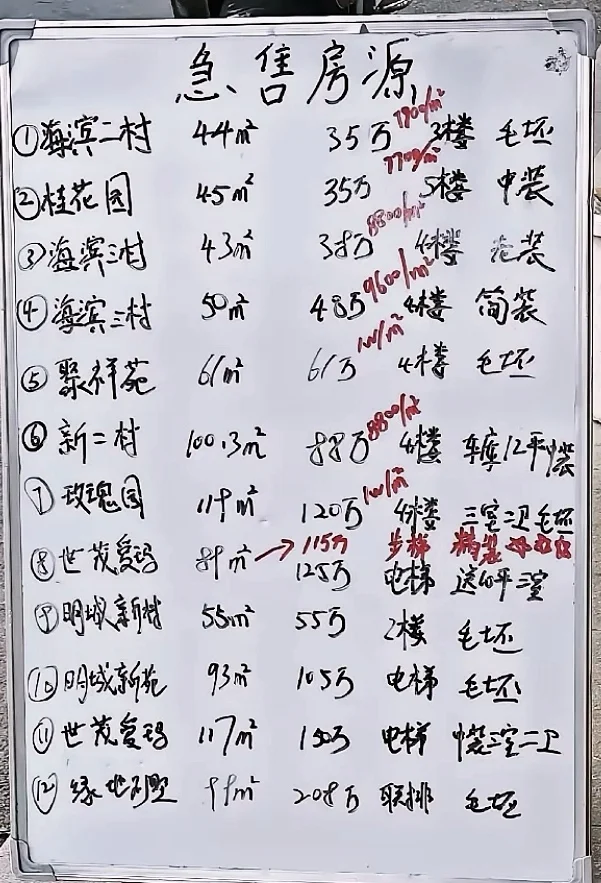 急售房源
①海滨二村 44m² 35万 7900/m² 3楼 毛坯
②桂花园 45m² 35万 7700/m² 5楼 中装
③海滨三村 43m² 38万 8800/m² 4楼 装
④海滨三村 50m² 48万 9600/m² 4楼 简装
⑤聚祥苑 61m² 61万 4楼 毛坯
⑥新二村 100.3m² 88万 8800/m² 4楼 车库12平 中装
⑦玫瑰园 119m² 120万 4楼 三室二卫毛坯
115万 步梯 精装
⑧世茂爱玛 89m² → 125万 电梯 送40平三室
⑨明城新村 55m² 55万 2楼 毛坯
⑩明城新苑 93m² 105万 电梯 毛坯
⑪世茂爱玛 117m² 150万 电梯 中装三室二卫
⑫绿地 99m² 208万 联排 毛坯